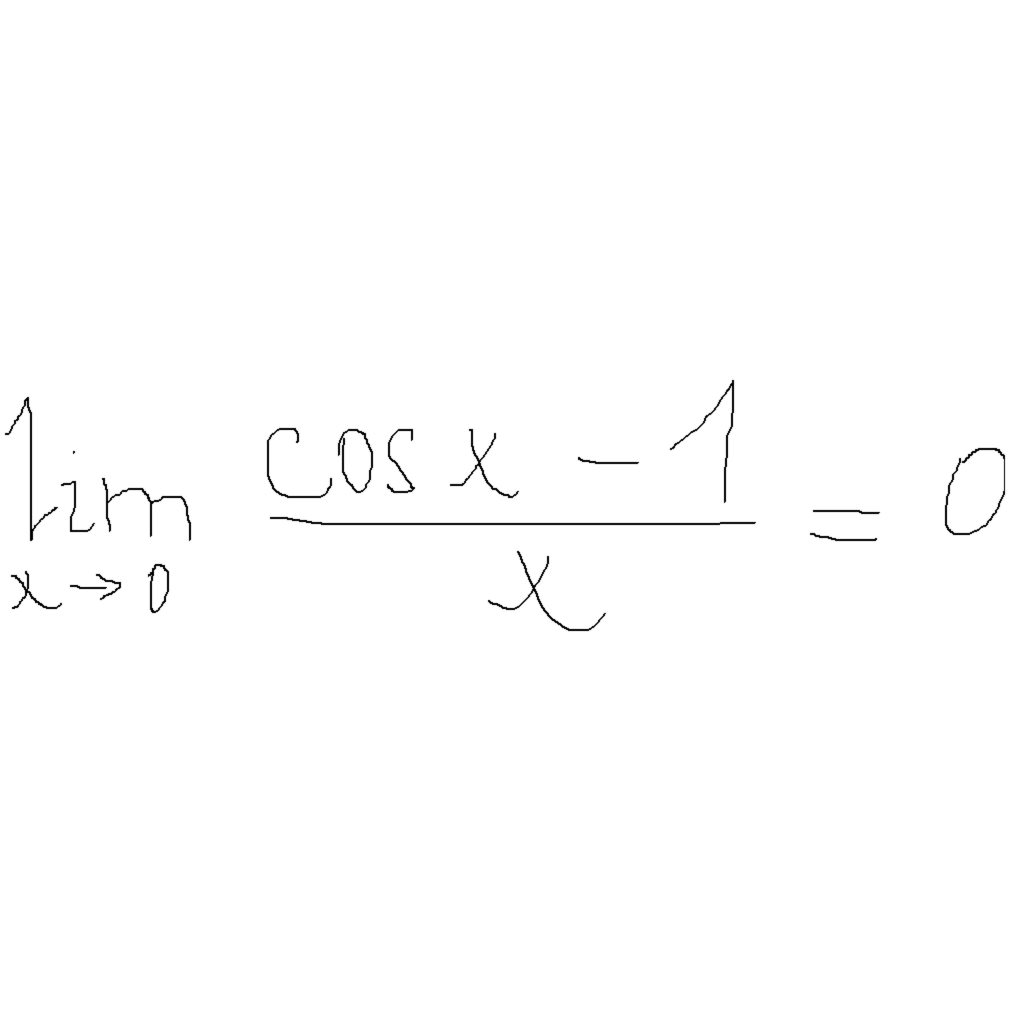 \lim_{x \to 0} \frac{\cos x - 1}{x} = 0